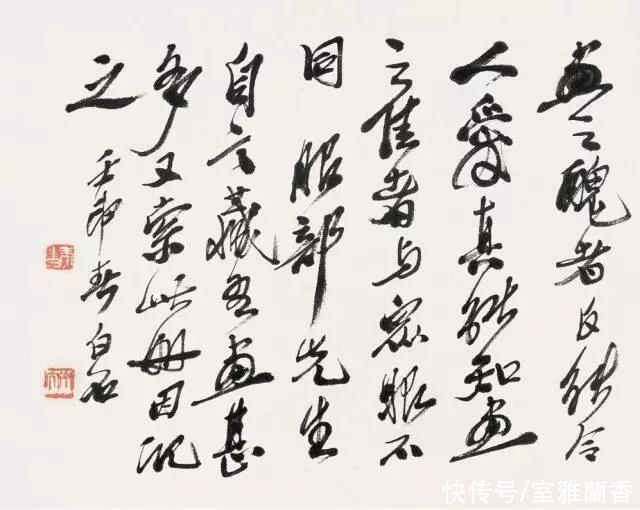 畫之醜者反能令
人愛真能知畫
之佳者与眾眼不
同 服部先生
自言藏吾畫甚
多又索此冊因記
之 壬申春 白石
快传号/室雅蘭香